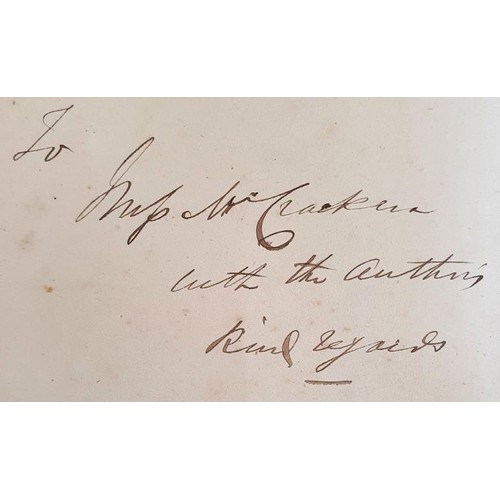 To
Miss McCracken
with the Author's
Kind regards